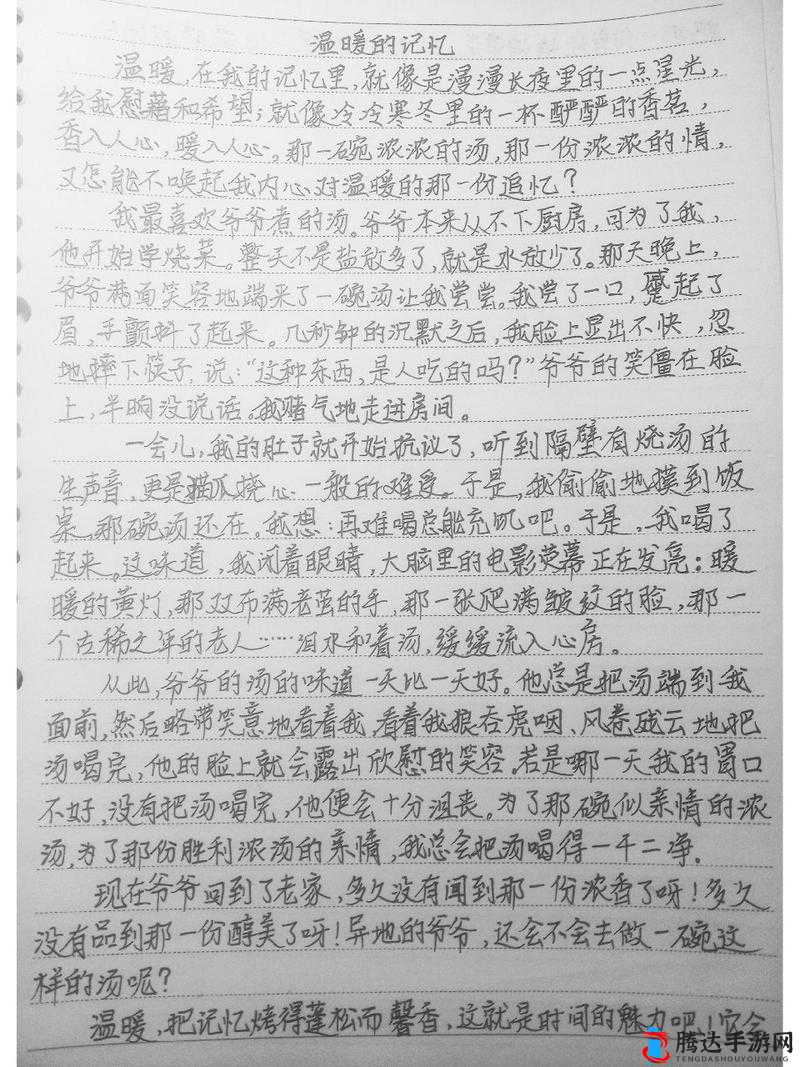 温暖的记忆
温暖,在我的记忆里,就像是漫漫长夜里的一点星光,
给我慰藉和希望;就像冷冷寒冬里的一杯酽酽的香茗,
香入人心,暖入人心。那一碗浓浓的汤,那一份浓浓的情,
又怎能不唤起我内心对温暖的那一份追忆?
我最喜欢爷爷煮的汤。爷爷本来从不下厨房,可为了我,
他开始学烧菜。整天不是盐放多了,就是水放少了。那天晚上,
爷爷满面笑容地端来了一碗汤让我尝尝。我尝了一口,蹙起了
眉,手颤抖了起来。几秒钟的沉默之后,我脸上显出不快,忽
地摔下筷子,说:“这种东西,是人吃的吗?”爷爷的笑僵在脸
上,半晌没说话。我赌气地走进房间。
一会儿,我的肚子就开始抗议了,听到隔壁有烧汤的
生声音,更是猫爪挠心一般的难受。于是,我偷偷地摸到饭
桌,那碗汤还在。我想:再难喝总能充饥吧。于是,我喝了
起来。这味道,我闭着眼睛,大脑里的电影荧幕正在发亮:暖
暖的黄灯,那双布满老茧的手,那一张爬满皱纹的脸,那一
个古稀之年的老人……泪水和着汤,缓缓流入心房。
从此,爷爷的汤的味道一天比一天好。他总是把汤端到我
面前,然后略带笑意地看着我,看着我狼吞虎咽、风卷残云地把
汤喝完,他的脸上就会露出欣慰的笑容。若是哪一天我的胃口
不好,没有把汤喝完,他便会十分沮丧。为了那碗似亲情的浓
汤,为了那份胜利浓汤的亲情,我总会把汤喝得一干二净。
现在爷爷回到了老家,多久没有闻到那一份浓香了呀!多久
没有品到那一份醇美了呀!异地的爷爷,还会不会去做一碗这
样的汤呢?
温暖,把记忆烤得蓬松而馨香,这就是时间的魅力吧!它会
腾达手游网
TENGDASHOUYOUWANG